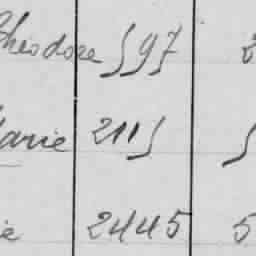 Théodore 597
Marie 2115
ie 2445 5